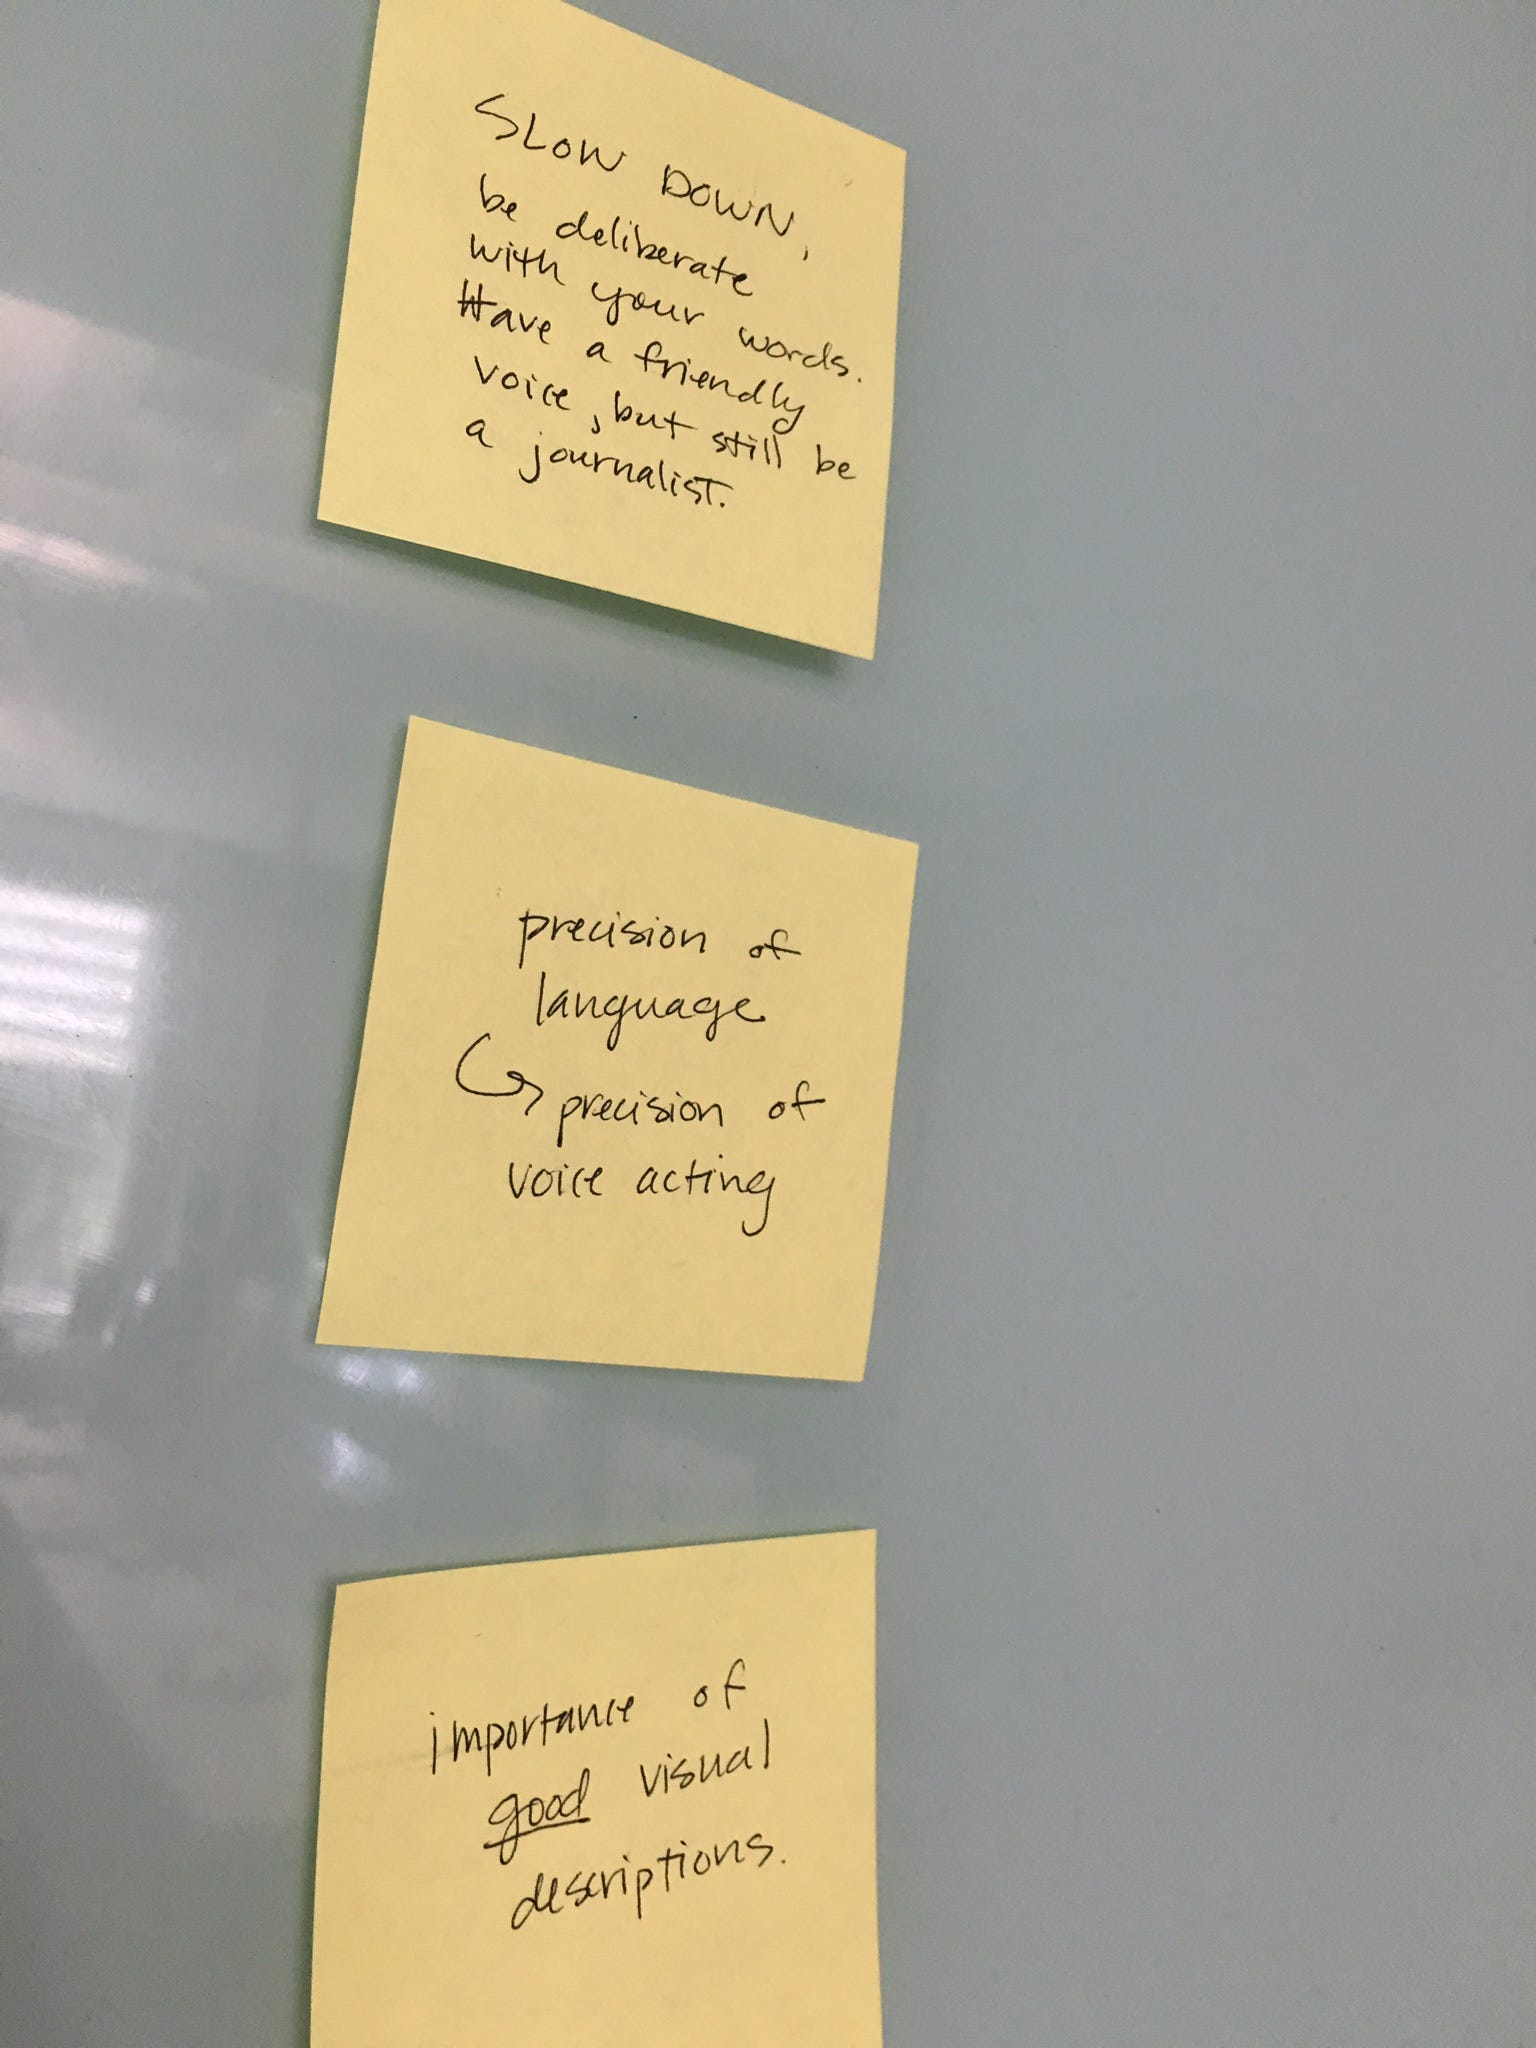 SLOW DOWN,
be deliberate
with your words.
Have a friendly
voice, but still be
a journalist.
precision of
language
precision of
voice acting
importance of
good visual
descriptions.